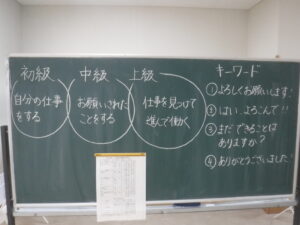 初級 中級 上級
自分の仕事
をする
お願いされた
ことをする
仕事を見つけて
進んで働く
キーワード
①よろしくお願いします!
②はい、よろこんで!!
③まだできることは
ありますか?
④ありがとうございました!